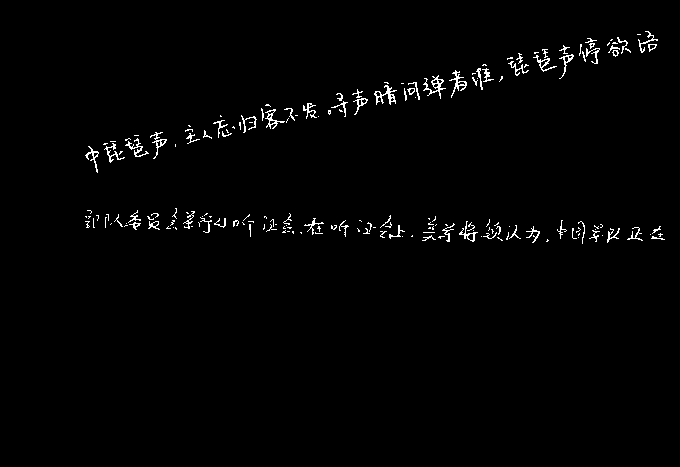 中琵琶声，主人忘归客不发。寻声暗问弹者谁，琵琶声停欲语
部队委员会举行的听证会。在听证会上，美军将领认为，中国军队正在